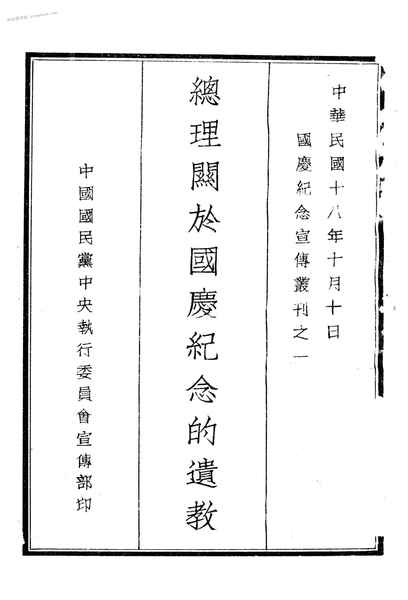 中華民國十八年十月十日
國慶紀念宣傳叢刊之一
總理關於國慶紀念的遺教
中國國民黨中央執行委員會宣傳部印